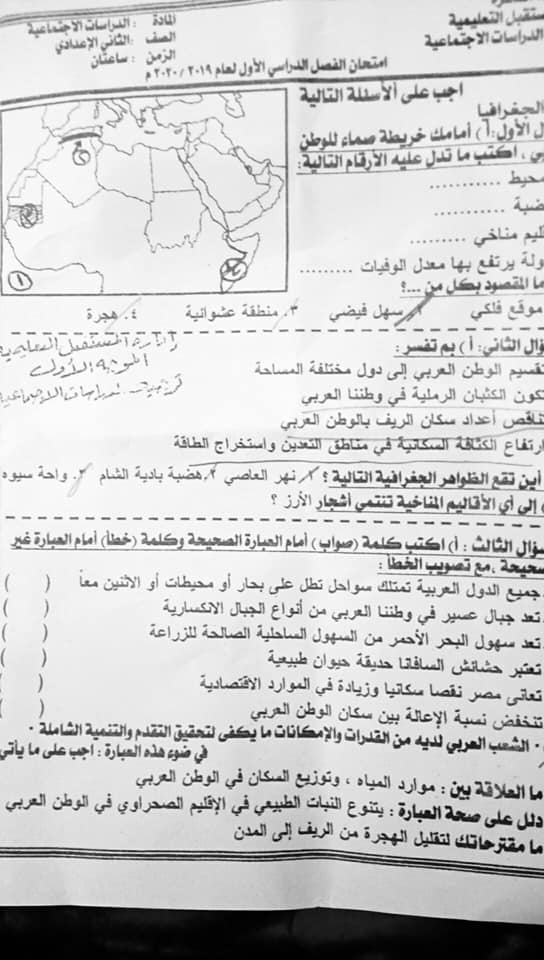 ستقبل التعليمية
الدراسات الاجتماعية
المادة : الدراسات الاجتماعية
الصف : الثاني الإعدادي
الزمن : ساعتان
امتحان الفصل الدراسي الأول لعام ٢٠١٩ / ٢٠٢٠ م
اجب على ألأسئلة التالية
الجغرافيا
ل الأول: أ) أمامك خريطة صماء للوطن
بي ، اكتب ما تدل عليه الأرقام التالية :
محيط ..........
ضبة ..........
ليم مناخي ..........
ولة يرتفع بها معدل الوفيات ..........
ما المقصود بكل من ...؟
موقع فلكي ٢. سهل فيضي ٣. منطقة عشوائية ٤. هجرة
ؤال الثاني: أ) بم تفسر :
تقسيم الوطن العربي إلى دول مختلفة المساحة
تكون الكثبان الرملية في وطننا العربي
تناقص أعداد سكان الريف بالوطن العربي
ارتفاع الكثافة السكانية في مناطق التعدين واستخراج الطاقة
أين تقع الظواهر الجغرافية التالية ؟ ١. نهر العاصي ٢. هضبة بادية الشام ٣. واحة سيوه
إلى أي الأقاليم المناخية تنتمي أشجار الأرز ؟
سؤال الثالث : أ) اكتب كلمة (صواب) أمام العبارة الصحيحة وكلمة (خطأ) أمام العبارة غير
صحيحة ،مع تصويب الخطأ :
جميع الدول العربية تمتلك سواحل تطل على بحار أو محيطات أو الاثنين معاً ( )
تعد جبال عسير في وطننا العربي من أنواع الجبال الانكسارية ( )
تعد سهول البحر الأحمر من السهول الساحلية الصالحة للزراعة ( )
تعتبر حشائش السافانا حديقة حيوان طبيعية ( )
تعانى مصر نقصا سكانيا وزيادة في الموارد الاقتصادية ( )
تنخفض نسبة الإعالة بين سكان الوطن العربي ( )
الشعب العربي لديه من القدرات والإمكانات ما يكفى لتحقيق التقدم والتنمية الشاملة "
في ضوء هذه العبارة : اجب على ما يأتي
ما العلاقة بين : موارد المياه ، وتوزيع السكان في الوطن العربي
دلل على صحة العبارة : يتنوع النبات الطبيعي في الإقليم الصحراوي في الوطن العربي
ما مقترحاتك لتقليل الهجرة من الريف إلى المدن